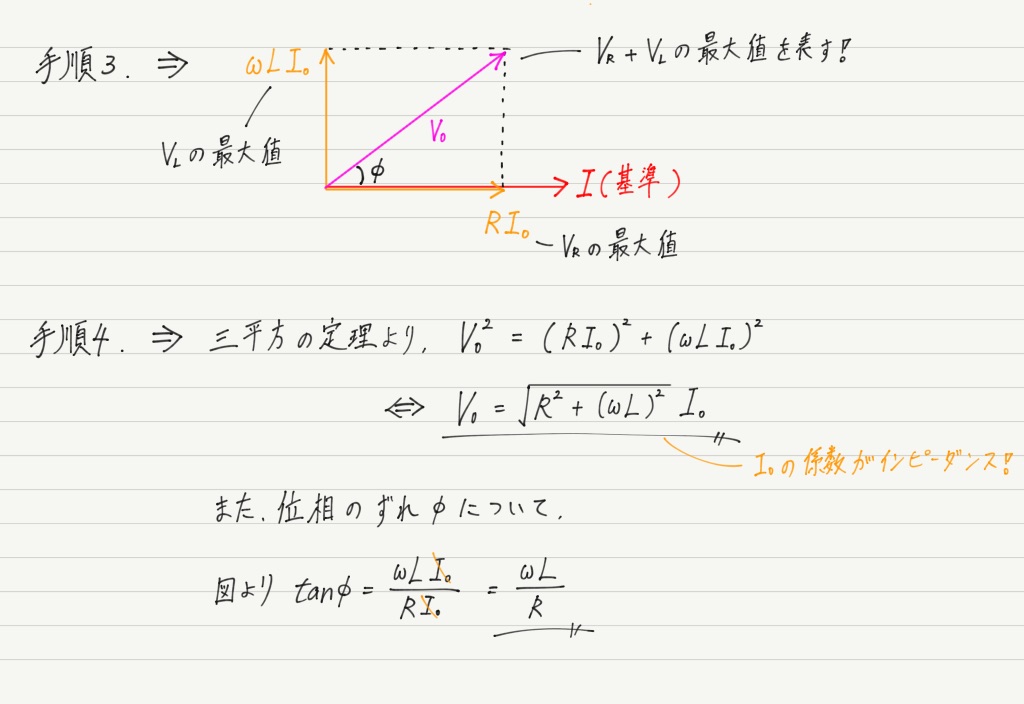 手順3. ⇒ ωLI₀ V_R + V_Lの最大値を表す!
V₀
V_Lの最大値
φ
I(基準)
RI₀
V_Rの最大値
手順4. ⇒ 三平方の定理より, V₀² = (RI₀)² + (ωLI₀)²
⇔ V₀ = √(R² + (ωL)²) I₀
I₀の係数がインピーダンス!
また, 位相のずれφについて,
図より tanφ = ωLI₀/RI₀ = ωL/R